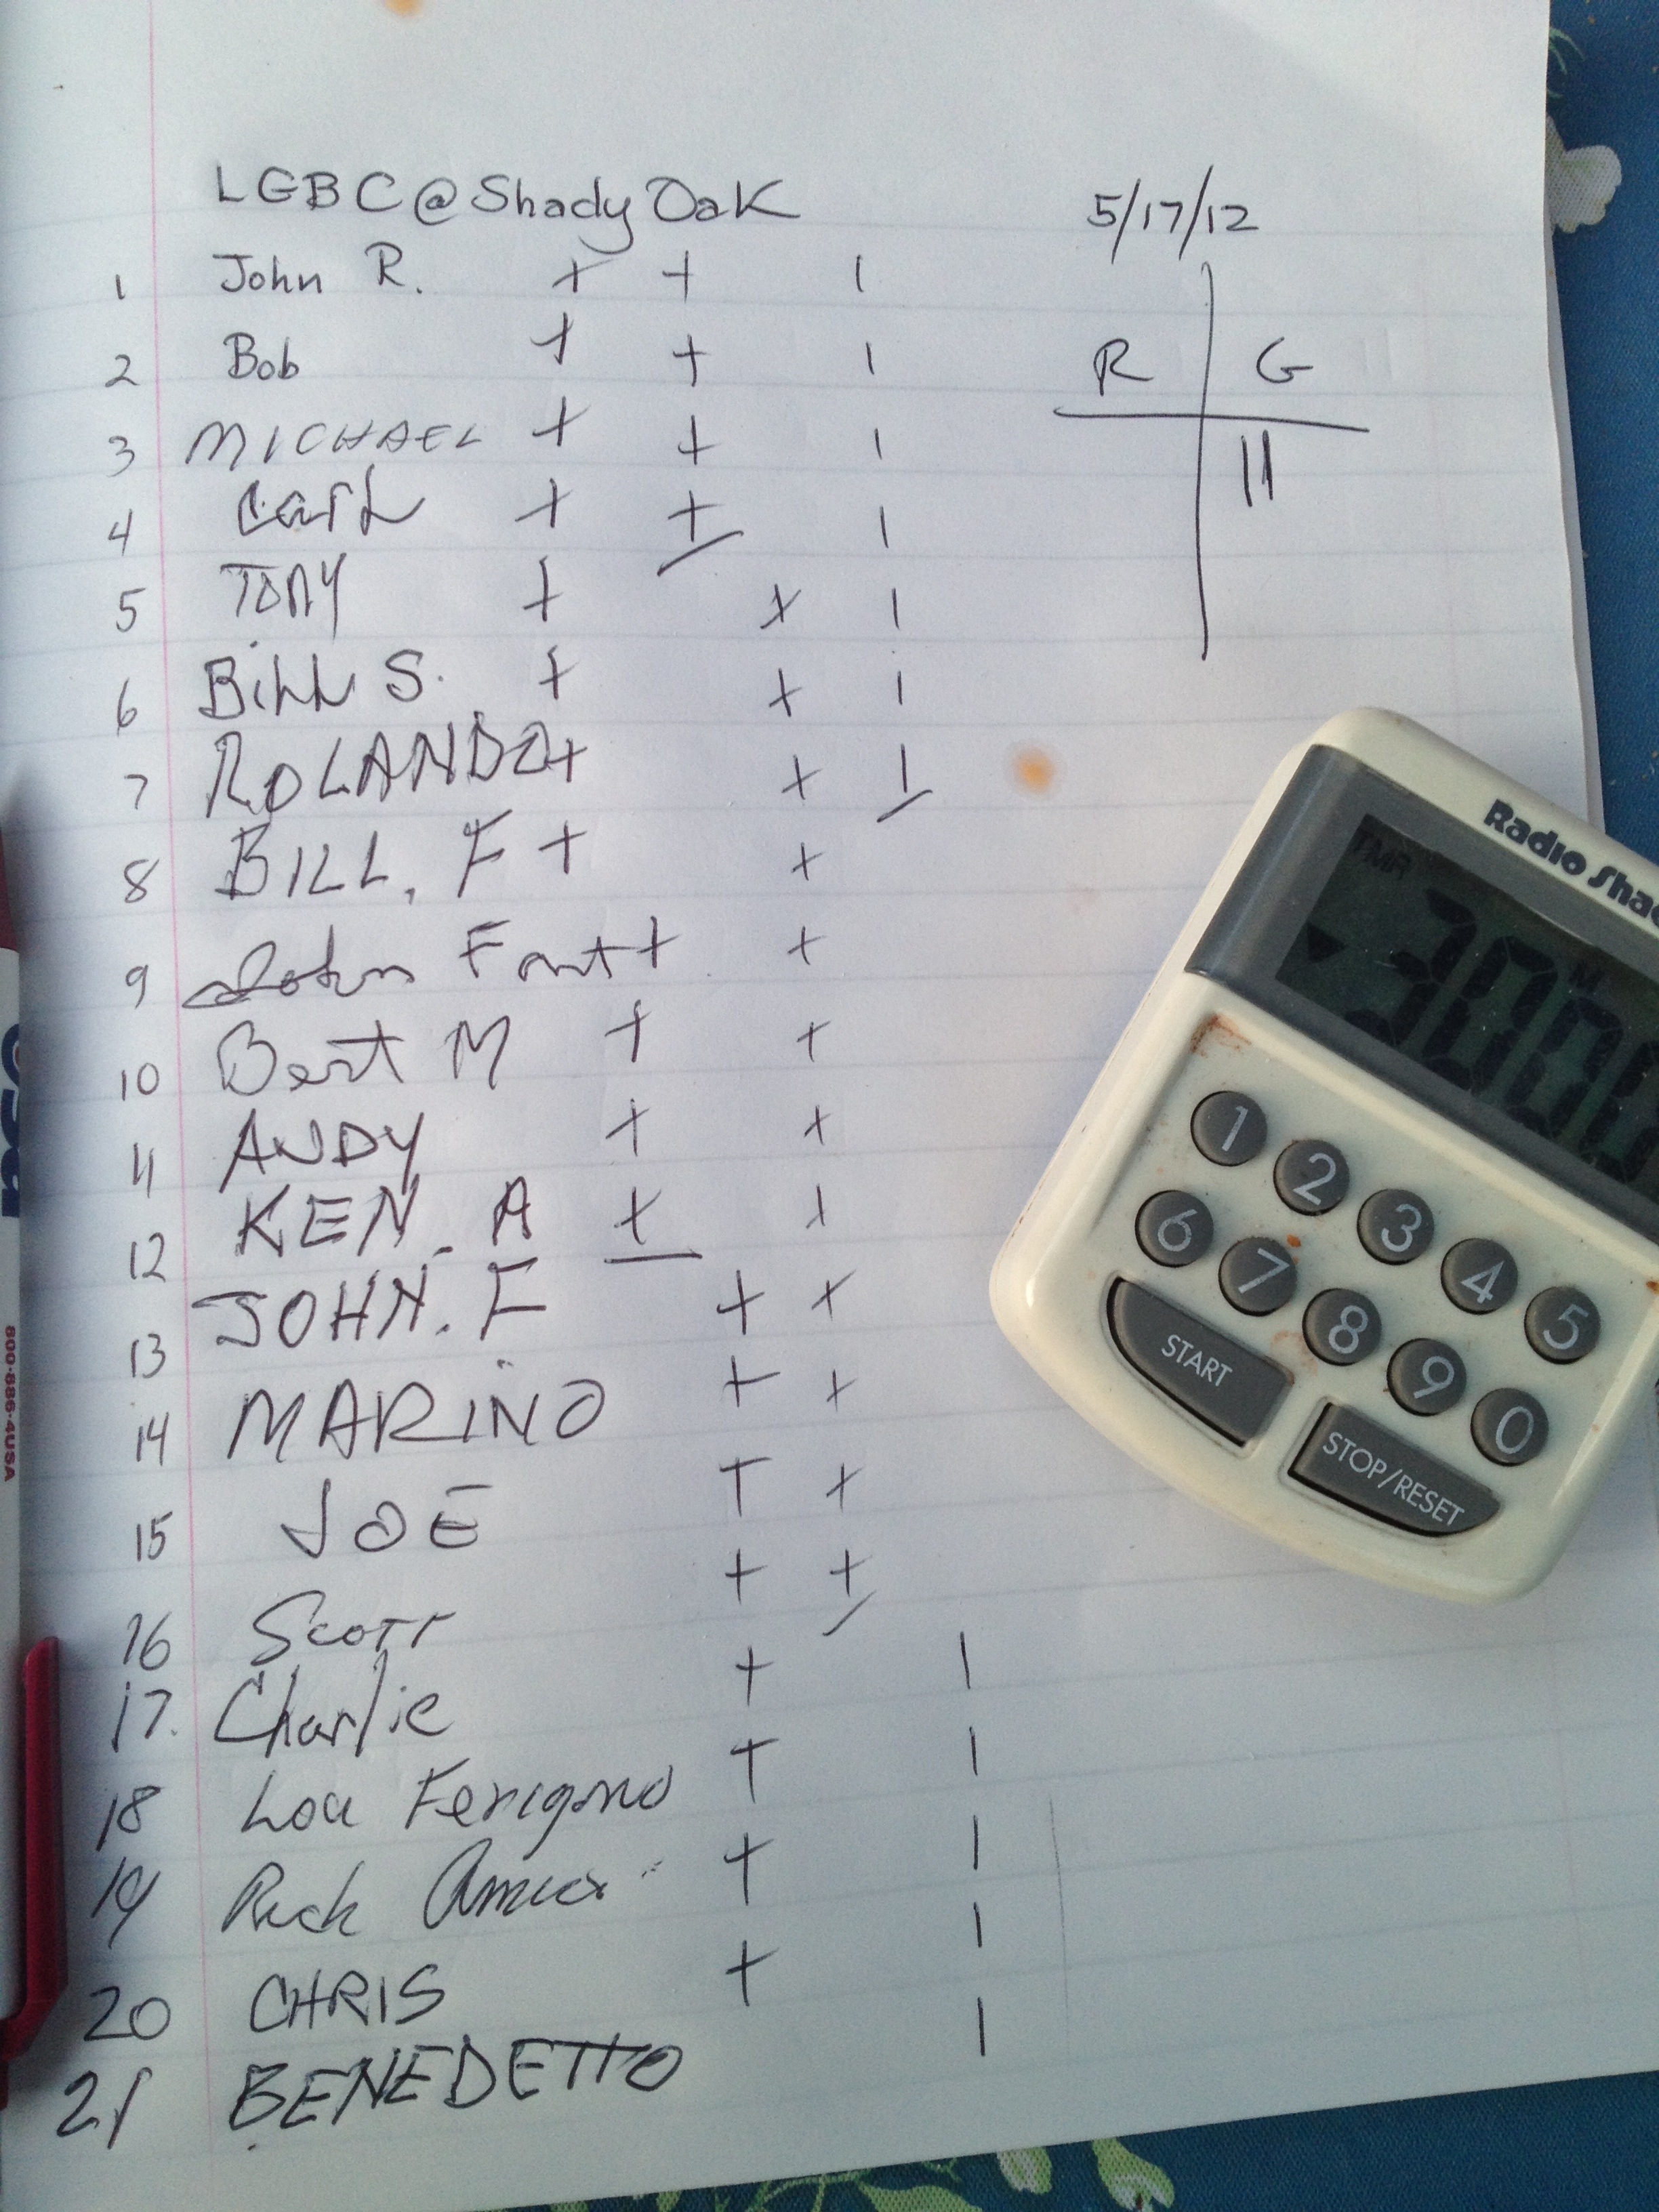 LGBC @ Shady Oak 5/17/12
1 John R. + + 1
2 Bob + + 1
R G
3 MICHAEL + + 1
11
4 Carl + + 1
5 TONY + x 1
6 Bill S. + + 1
7 ROLANDO + + 1
8 BILL. F + +
9 John Font + +
10 Bert M + +
11 ANDY + +
12 KEN. A + +
13 JOHN. F + +
14 MARINO + +
15 JOE + +
16 Scott + +
17. Charlie + 1
18 Lou Ferigno + 1
19 Rick + 1
20 CHRIS + 1
21 BENEDETTO 1
Radio Shac
TMR
M
300
1 2 3 4 5
6 7 8 9 0
START
STOP/RESET
800-886-4USA